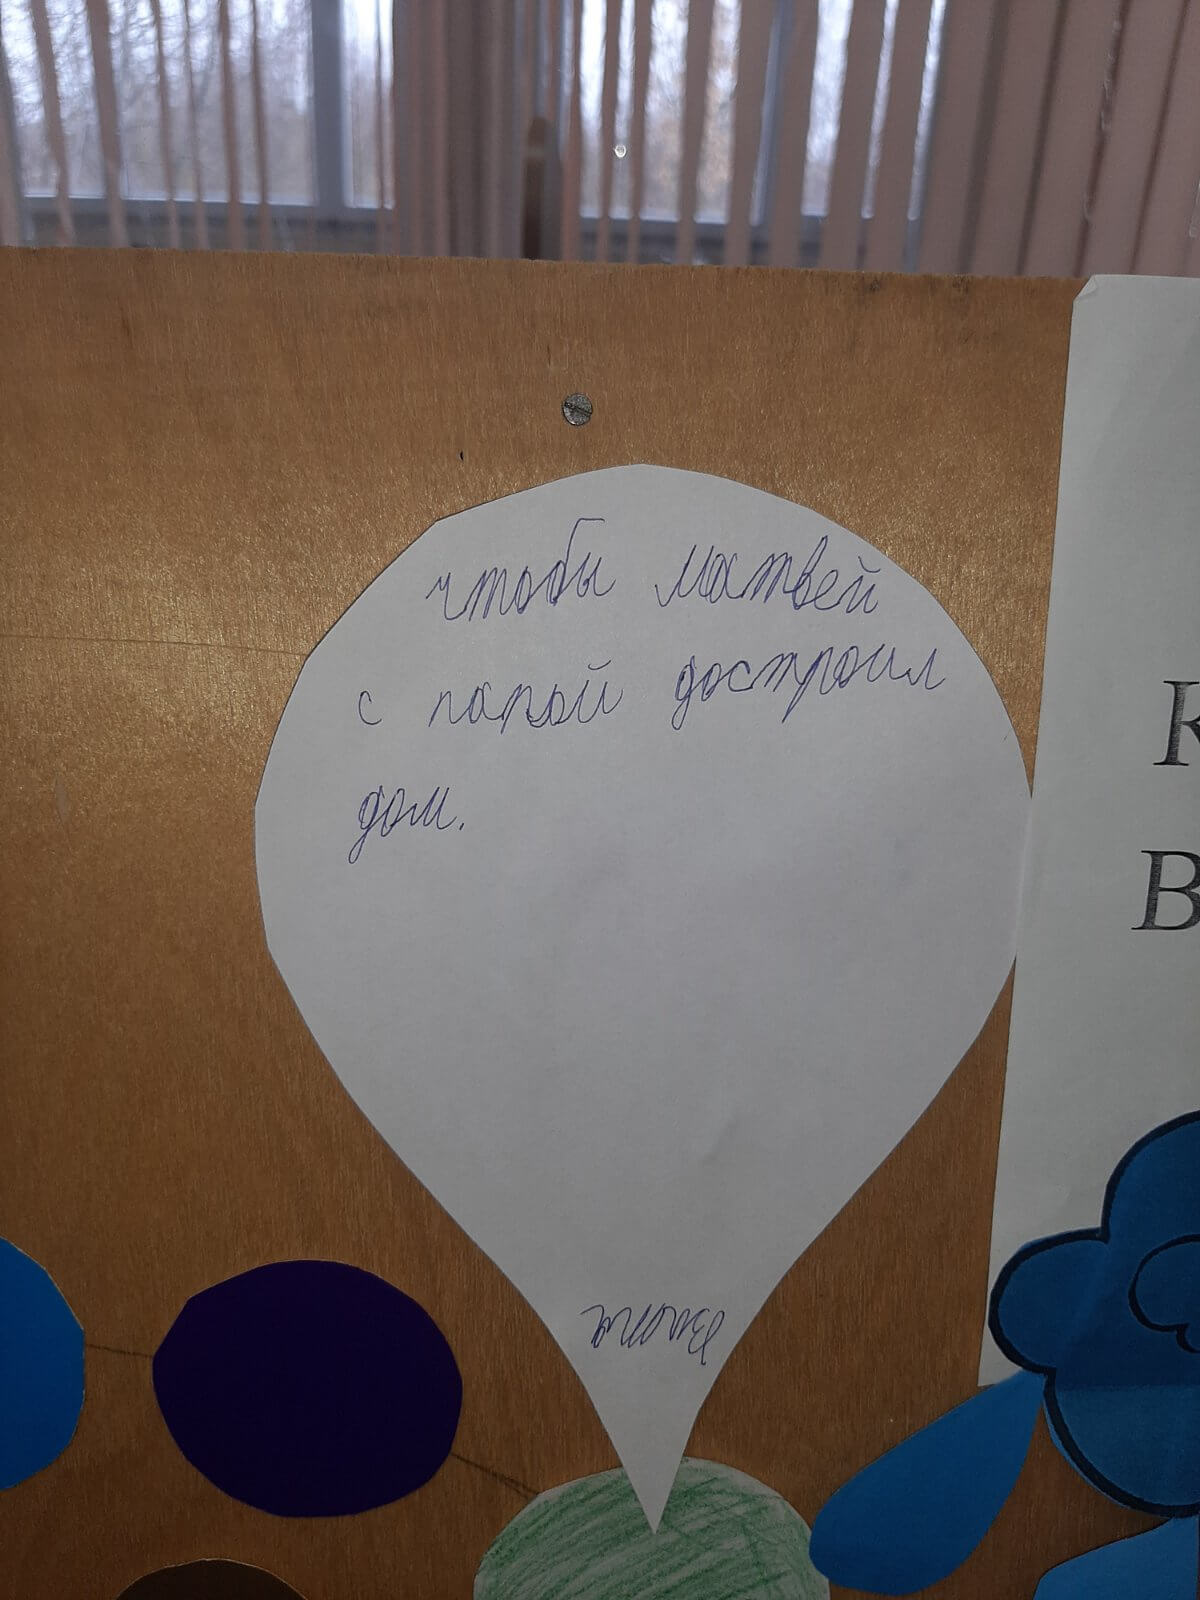 чтобы Матвей
с папой достроил
дом.
К
В